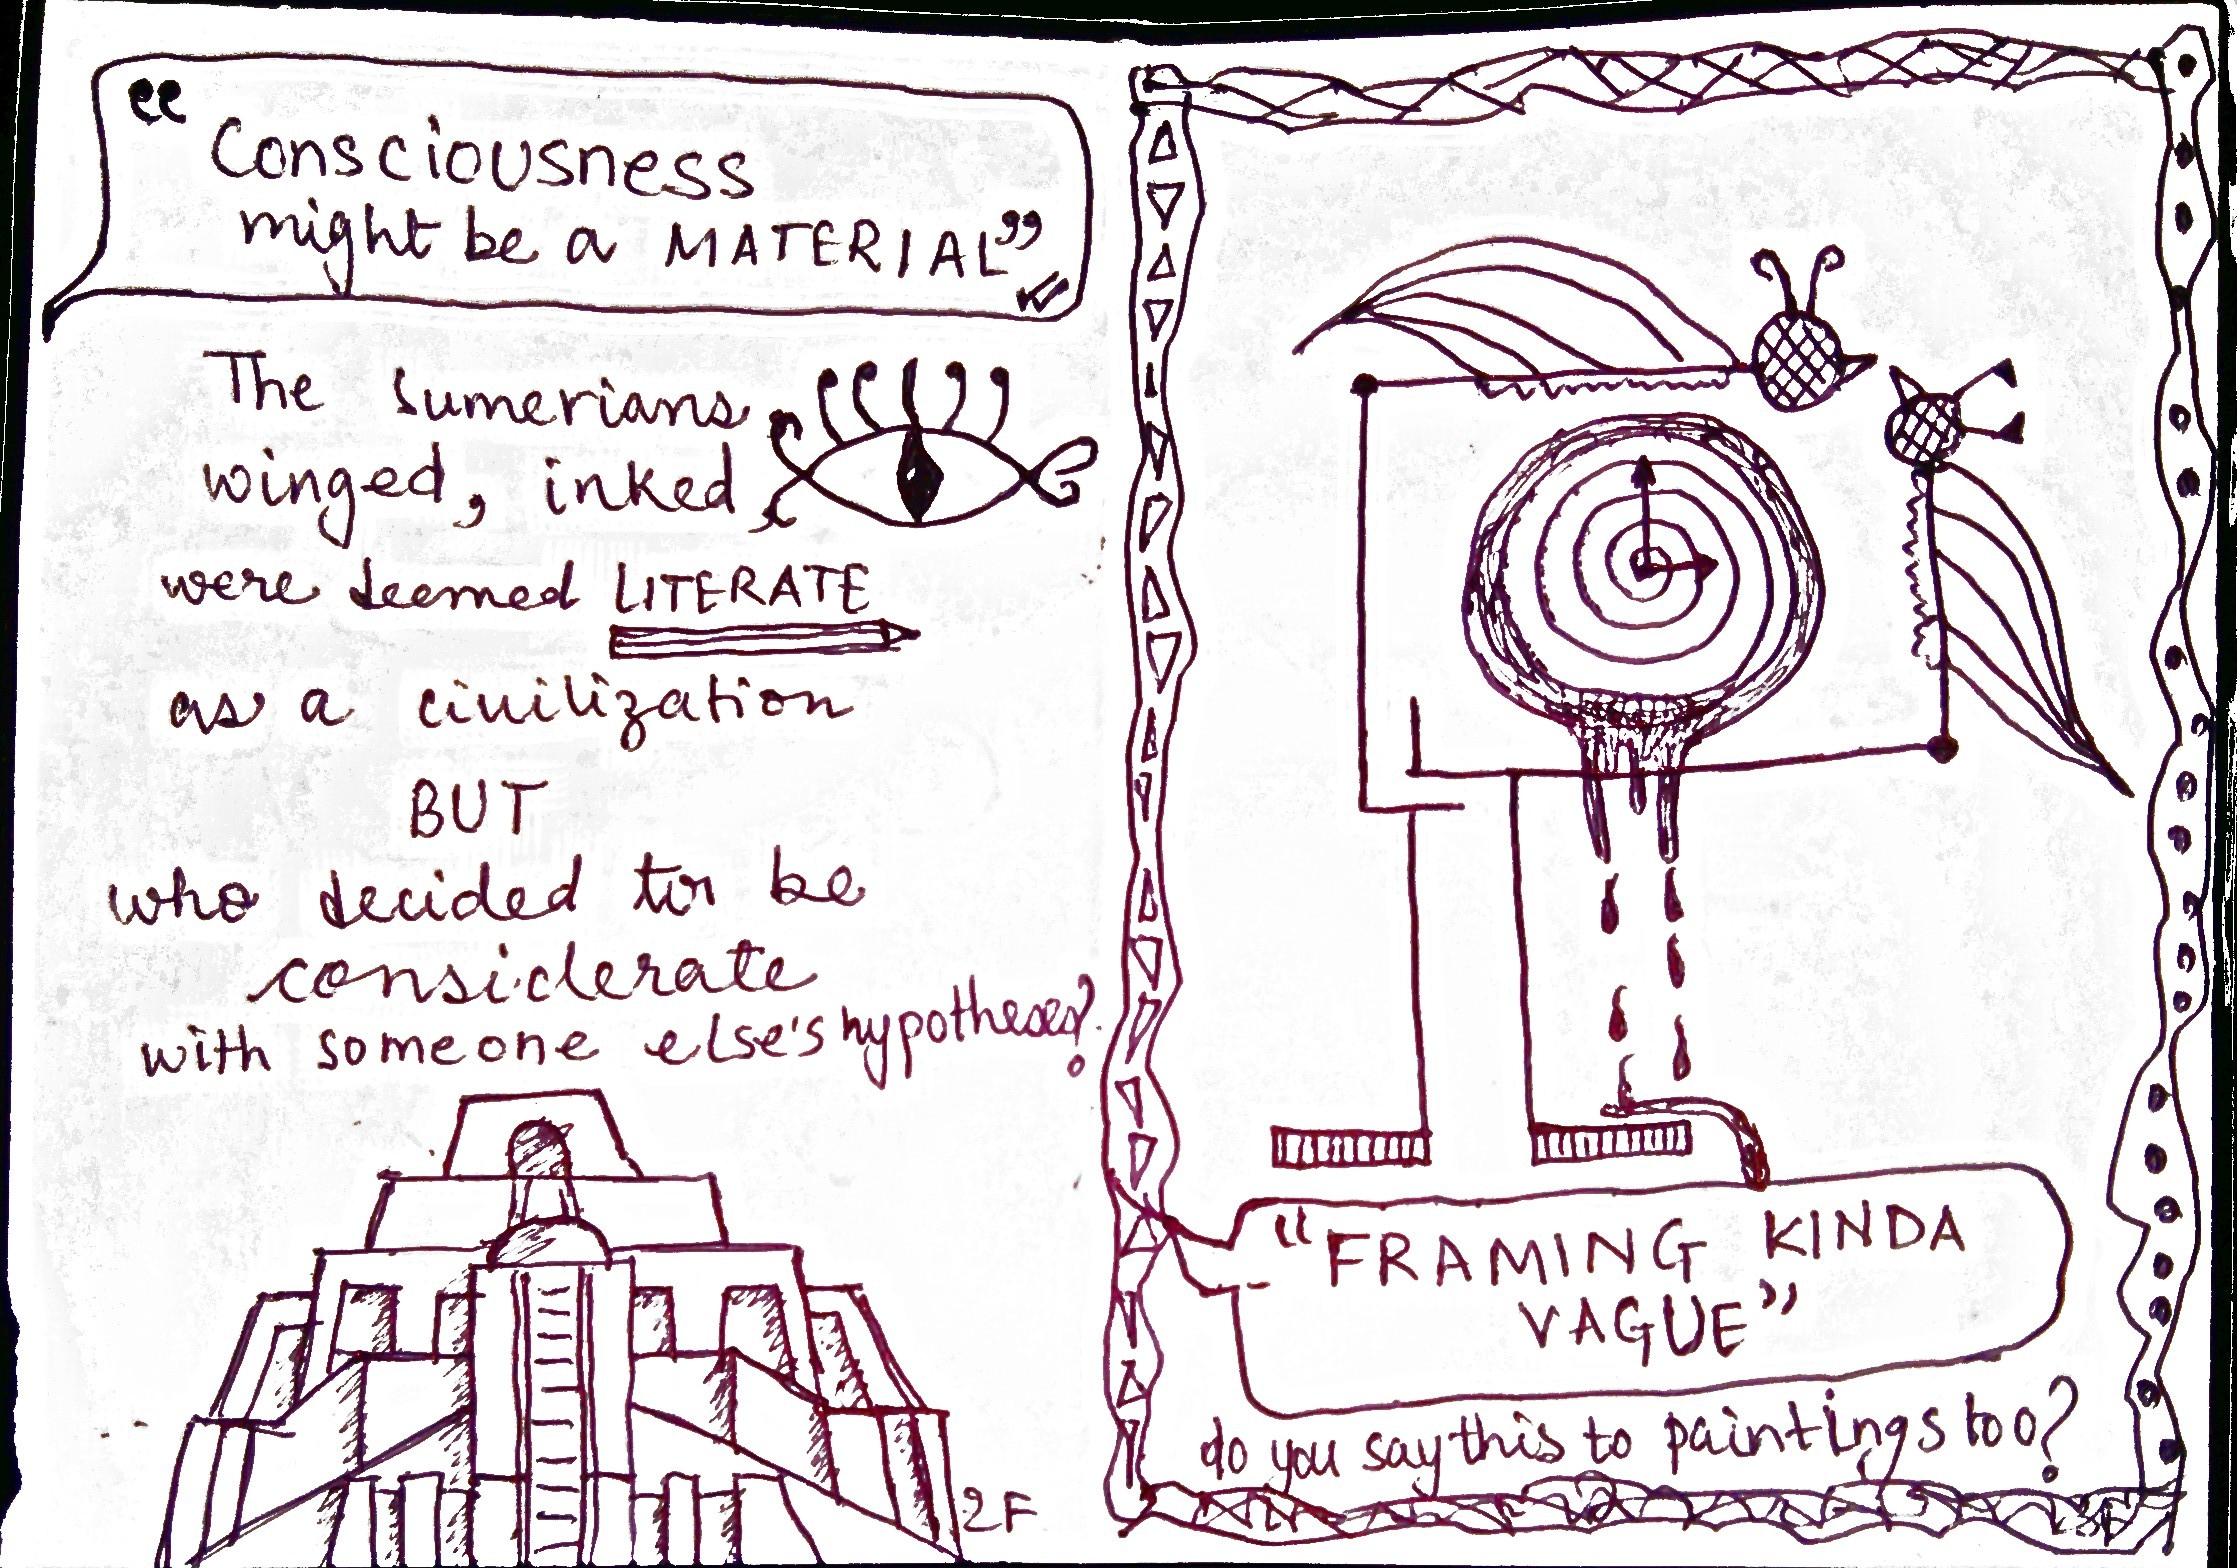 “Consciousness
might be a MATERIAL”
The Sumerians
winged, inked,
were deemed LITERATE
as a civilization
BUT
who decided to be
considerate
with someone else's hypotheses?
2F
“FRAMING KINDA
VAGUE”
do you say this to paintings too?
3F